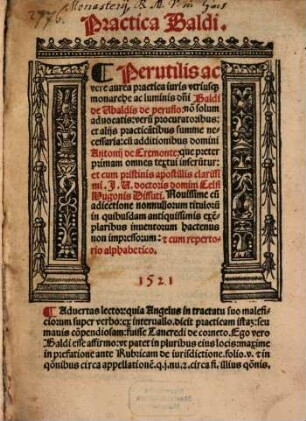 Monasterij
Practica Baldi.
¶ Perutilis ac
vere aurea practica iuris vtriusq3
monarche ac luminis dñi Baldi
de Vbaldis de perusio: nõ solum
aduocatis: verũ procuratoribus:
et alijs practicãtibus summe ne-
cessaria: cũ additionibus domini
Antonij de Cremonte: que preter
primam omnes textui inserũtur:
et cum pristinis apostillis clarissi
mi. J. U. doctoris domini Celsi
Hugonis Dissuti. Nouissime cũ
adiectione nonnullorum titulorũ
in quibusdam antiquissimis exẽ-
plaribus inuentorum hactenus
non impressorum: et cum reperto-
rio alphabetico.
1521
¶ Aduertas lector: quia Angelus in tractatu suo malefi-
ciorum super verbo: ex interuallo. dicit practicam istaz: seu
mauis cõpendiosam: fuisse Tancredi de corneto. Ego vero
Baldi esse affirmo: vt patet in pluribus eius locis: maxime
in prefatione ante Rubricam de iurisdictione. folio. v. et in
q̃onibus circa appellationẽ. q. j. nu. 2. circa fi. illius q̃onis.